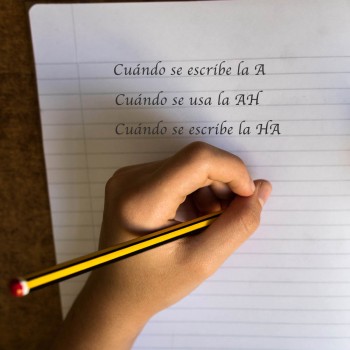 Cuándo se escribe la A
Cuándo se usa la AH
Cuándo se escribe la HA